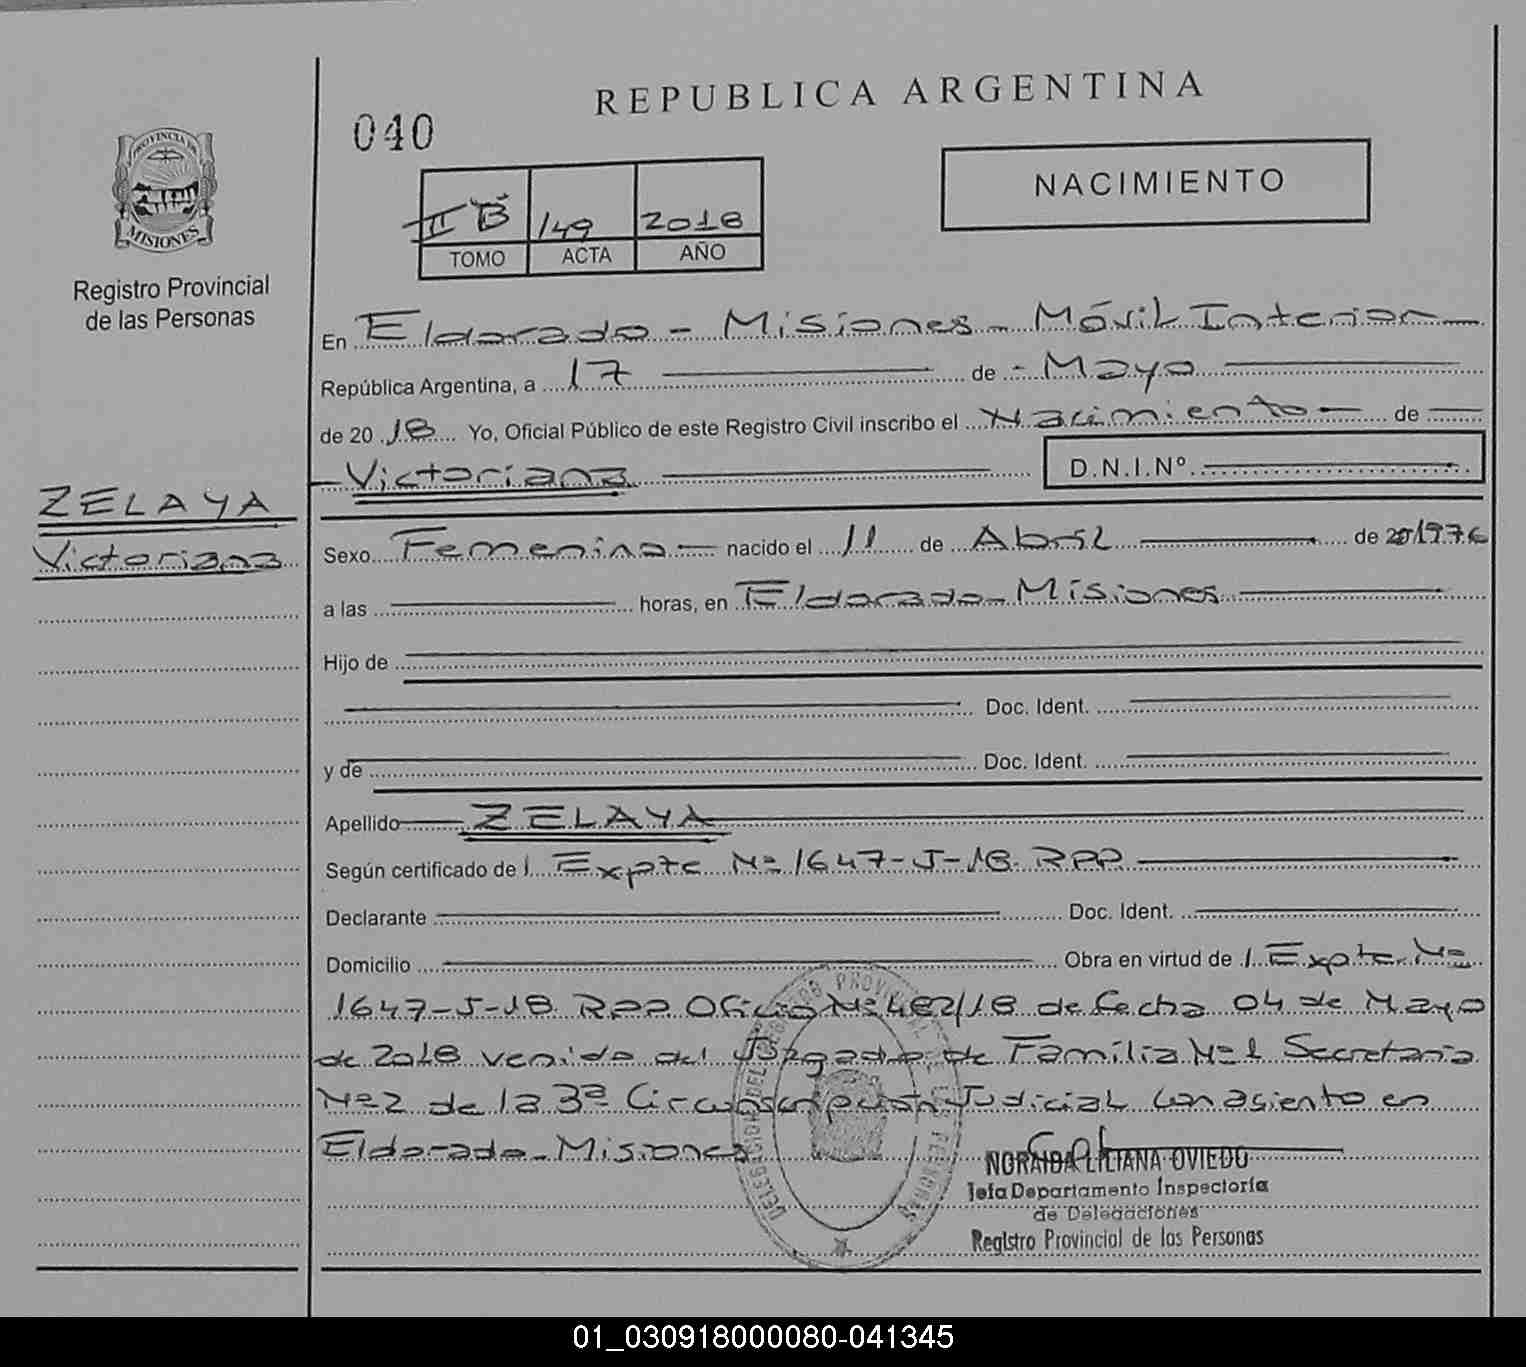 REPUBLICA ARGENTINA
040
NACIMIENTO
PROVINCIA DE
MISIONES
Registro Provincial
de las Personas
II B 149 2018
TOMO ACTA AÑO
En Eldorado - Misiones - Móvil Interior
República Argentina, a 17 de - Mayo
de 20 18 Yo, Oficial Público de este Registro Civil inscribo el Nacimiento de
Victoriana D.N.I.Nº
ZELAYA
Victoriana
Sexo Femenino nacido el 11 de Abril de 20 1976
a las horas, en Eldorado - Misiones
Hijo de
Doc. Ident.
y de Doc. Ident.
Apellido ZELAYA
Según certificado de l Expte Nº 1647-J-18 RPP
Declarante Doc. Ident.
Domicilio Obra en virtud de l Expte Nº
1647-J-18 RPP Oficio Nº 482/18 de fecha 04 de Mayo
de 2018 venido del Juzgado de Familia Nº 1 Secretaria
Nº 2 de la 3ª Circunscripción Judicial con asiento en
Eldorado - Misiones
NORAIDA LILIANA OVIEDO
Jefa Departamento Inspectoría
de Delegaciones
Registro Provincial de las Personas
01_030918000080-041345